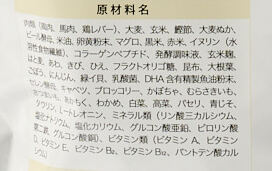 原材料名
肉類（鶏肉、馬肉、鶏レバー）、大麦、玄米、鰹節、大麦ぬか、
ビール酵母、米油、卵黄粉末、マグロ、黒米、赤米、イヌリン（水
溶性食物繊維）、コラーゲンペプチド、発酵調味液、玄米麹、
はと麦、あわ、きび、ひえ、フラクトオリゴ糖、昆布、大根葉、
ごぼう、にんじん、緑イ貝、乳酸菌、DHA含有精製魚油粉末、
セレン酵母、キャベツ、ブロッコリー、かぼちゃ、むらさきいも、
さつまいも、あかちく、わかめ、白菜、高菜、パセリ、青じそ、
タウリン、L-トレオニン、ミネラル類（リン酸三カルシウム、
塩化ナトリウム、塩化カリウム、グルコン酸亜鉛、ピロリン酸
第二鉄、グルコン酸銅）、ビタミン類（ビタミンA、ビタミン
D、ビタミンE、ビタミンB₂、ビタミンB₁₂、パントテン酸カル